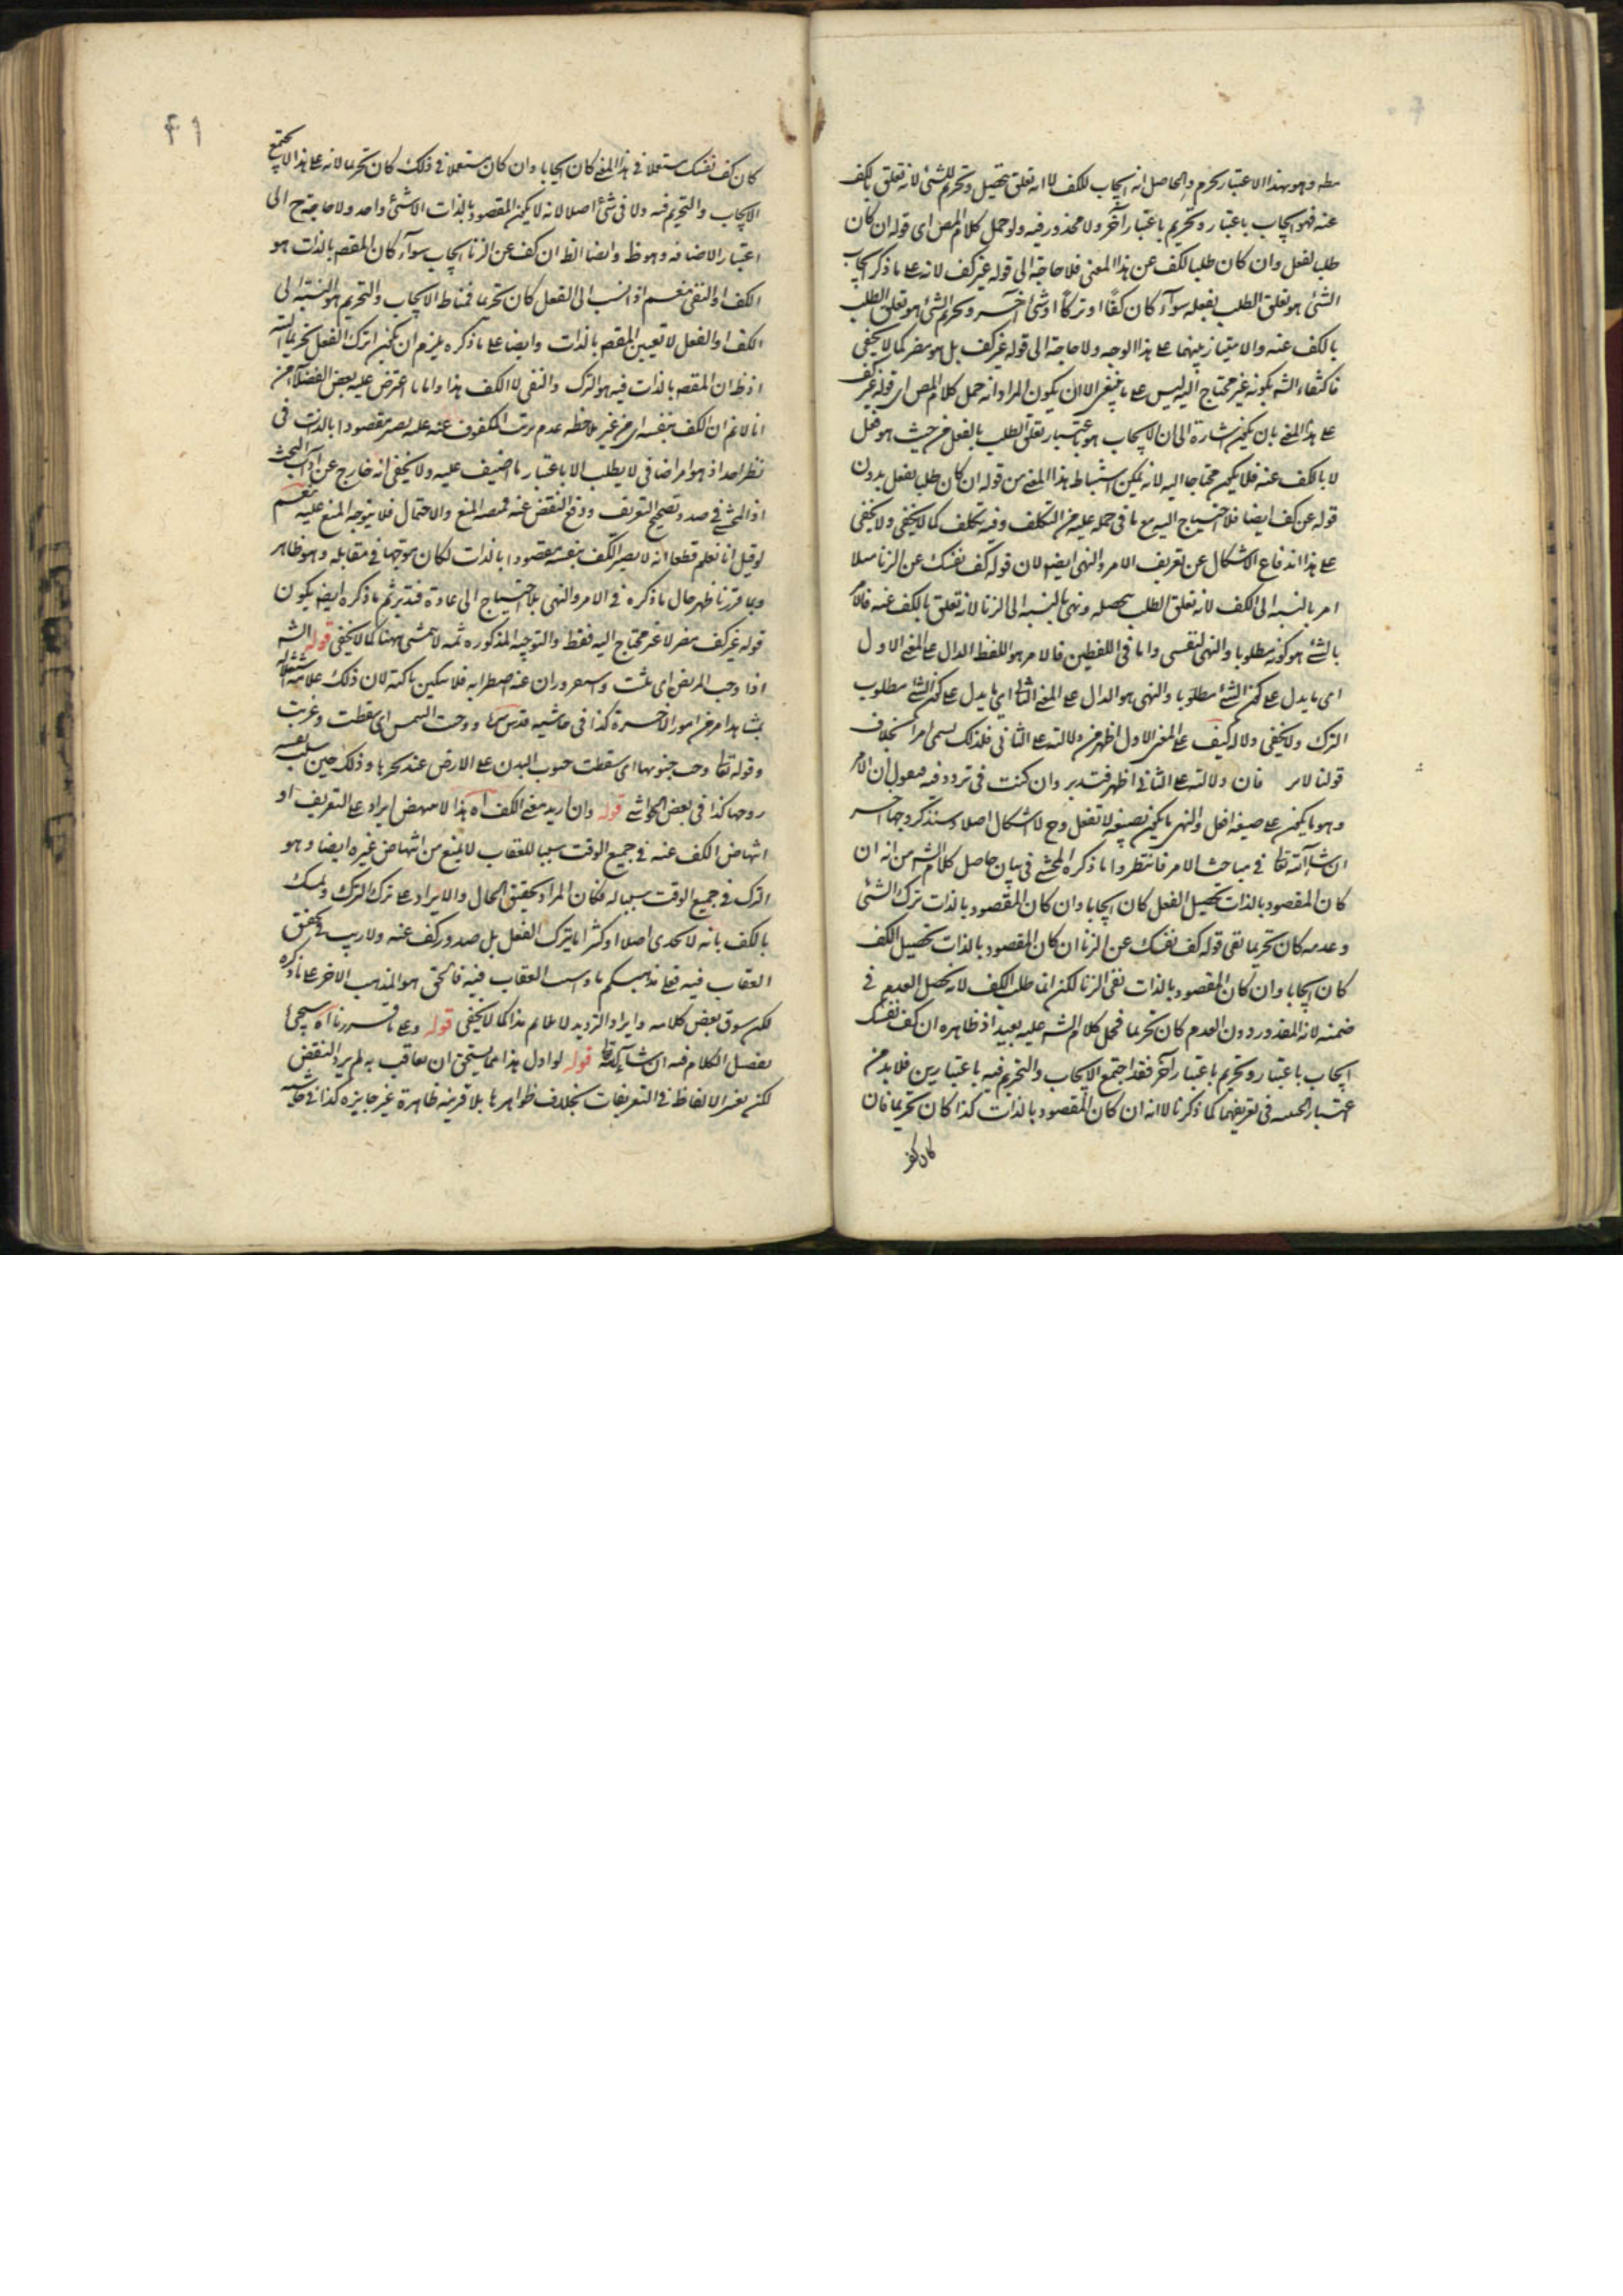 مطه وهو بهذا الاعتبار يحرم والحاصل انه ايجاب للكف لا انه تعلق بتحصيل وتحريم للشئ لانه تعلق بالكف
عنه فهو ايجاب باعتبار وتحريم باعتبار آخر ولا محذور فيه ولو حمل كلام المص اى قوله ان كان
طلبا لفعل وان كان طلبا لكف عن هذا المعنى فلا حاجة الى قوله غير كف لانه على ما ذكر ايجاب
الشئ هو تعلق الطلب بفعله سوآء كان كفًا او تركًا او شئ آخر وتحريم الشئ هو تعلق الطلب
بالكف عنه والامتياز بينهما على هذا الوجه ولا حاجة الى قوله غير كف بل هو مضر كما لا يخفى
فاكتفاء الشه بكونه غير محتاج اليه ليس على ما ينبغى الا ان يكون المراد انه حمل كلام المص اى قوله غير كف
على هذا المعنى بان يكون اشارة الى ان الايجاب هو باعتبار تعلق الطلب بالفعل من حيث هو فعل
لا بالكف عنه فلا يكون محتاجا اليه لانه يمكن استنباط هذا المعنى من قوله ان كان طلب لفعل بدون
قوله عن كف ايضا فلا احتياج اليه مع ما فى حمله عليه من التكلف وفيه تكلف كما لا يخفى ولا يخفى
على هذا اندفاع الاشكال عن تعريف الامر والنهى ايضا لان قوله كف نفسك عن الزنا مثلا
امر بالنسبة الى الكف لانه تعلق الطلب بتحصيله ونهى بالنسبة الى الزنا لانه تعلق بالكف عنه فالامر
بالشئ هو كونه مطلوبا والنهى لنفسى واما فى اللفظين فالامر هو اللفظ الدال على المعنى الاول
اى ما يدل على كون الشئ مطلوبا والنهى هو الدال على المعنى الثانى اى ما يدل على كون الشئ مطلوب
الترك ولا يخفى دلالة كف على المعنى الاول اظهر من دلالته على الثانى فلذلك يسمى امرا بخلاف
قولنا لا فان دلالته على الثانى اظهر فتدبر وان كنت فى تردد فيه فنقول ان الامر
وهو ما يكون على صيغة افعل والنهى ما يكون بصيغة لا تفعل وح لا اشكال اصلا وسنذكر وجها آخر
ان شاء الله تعالى فى مباحث الامر فانتظر واما ذكره المحشى فى بيان حاصل كلام الشه من انه ان
كان المقصود بالذات تحصيل الفعل كان ايجابا وان كان المقصود بالذات ترك الشئ
وعدمه كان تحريما ففى قوله كف نفسك عن الزنا ان كان المقصود بالذات تحصيل الكف
كان ايجابا وان كان المقصود بالذات نفى الزنا لكن انما طلب الكف لانه يحصل العدم فى
ضمنه لانه المقدور دون العدم كان تحريما فحمل كلام الشه عليه بعيد اذ ظاهره ان كف نفسك
ايجاب باعتبار وتحريم باعتبار آخر فقد اجتمع الايجاب والتحريم فيه باعتبارين فلا بد من
اعتبار الحيثية فى تعريفهما كما ذكرنا لا انه ان كان المقصود بالذات كذا كان تحريما فان
كان كف
٤١
كان كف نفسك مستعملا فى هذا المعنى كان ايجابا وان كان مستعملا فى ذلك كان تحريما لانه على هذا لا يجتمع
الايجاب والتحريم فيه ولا فى شئ اصلا لانه لا يكون المقصود بالذات الا شئ واحد ولا حاجة ح الى
اعتبار الاضافة وهو ظ وايضا الظ ان كف عن الزنا ايجاب سوآء كان المقصه بالذات هو
الكف او النفى نعم اذا نسب الى الفعل كان تحريما فمناط الايجاب والتحريم هو النسبة الى
الكف او الفعل لا تعيين المقصه بالذات وايضا على ما ذكره يلزم ان يكون اترك الفعل تحريما البتة
اذ ظ ان المقصه بالذات فيه هو الترك والنفى لا الكف هذا واما ما اعترض عليه بعض الفضلآء من
انا لا نم ان الكف بنفسه اى من غير ملاحظة عدم ترتب المكفوف عنه عليه يصير مقصودا بالذات فى
نظر احد اذ هو امر اضافى لا يطلب الا باعتبار ما اضيف عليه ولا يخفى انه خارج عن آداب البحث
اذ المحشى فى صدد تصحيح التعريف ودفع النقض عنه فمنصبه المنع والاحتمال فلا يتوجه المنع عليه نعم
لو قيل انا نعلم قطعا انه لا يصير الكف بنفسه مقصودا بالذات لكان موجها فى مقابله وهو ظاهر
وبما قررنا ظهر حال ما ذكره فى الامر والنهى بلا احتياج الى عادة فتدبر ثم ما ذكره ايضا يكون
قوله غير كف مضر لا غير محتاج اليه فقط والتوجيه المذكورة ثمه لا تمشى ههنا كما لا يخفى قوله الشه
اذا وجب المريض اى ثلث وسعر وران عنه اضطرابه فلا سكين باكنة لان ذلك علامة
بشاهد امر من امور الآخرة كذا فى حاشيه قدس سره ووجبت الشمس اى سقطت وغربت
وقوله تعالى وجبت جنوبها اى سقطت جنوب البدن على الارض عند نحرها وذلك حين سلب
روحها كذا فى بعض الحواشى قوله وان اريد معنى الكف آه هذا لا ينهض ايراد على التعريف او
انتهاض الكف عنه فى جميع الوقت سببا للعقاب لا يمنع من انتهاض غيره ايضا وهو
الترك فى جميع الوقت سببا له فكان المراد تحقيق الحال والايراد على ترك الترك وتمسك
بالكف بانه لا يجدى اصلا او كثيرا ما يترك الفعل بل صدور كف عنه ولا ريب فى تحقق
العقاب فيه فعلى مذهبكم ما سبب العقاب فيه فالحق هو المذهب الاخر على ما ذكره
لكن سوق بعض كلامه وايراد الترديد لا يلائم هذا كما لا يخفى قوله وعلى ما قررنا آه سيجئ
تفصيل الكلام فيه ان شاء الله تعالى قوله لو اول هذا بما يستحق ان يعاقب به لم يرد النقض
لكن تغير الالفاظ فى التعريفات بخلاف ظواهرها بلا قرينة ظاهرة غير جايزه كذا فى حاشيه